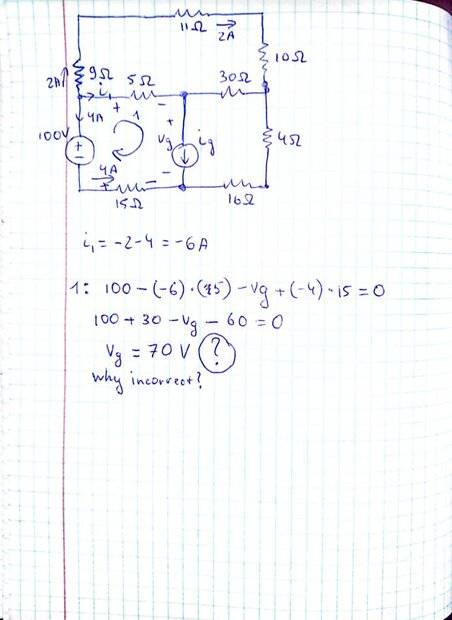 11Ω
2A
10Ω
2A
9Ω
i₁
5Ω
30Ω
+
-
4A
1
+
100V
+
-
vg
ig
4Ω
4A
-
+
-
15Ω
16Ω
i₁ = -2-4 = -6A
1: 100 - (-6)·(5) - vg + (-4)·15 = 0
100 + 30 - vg - 60 = 0
vg = 70 V ?
why incorrect?